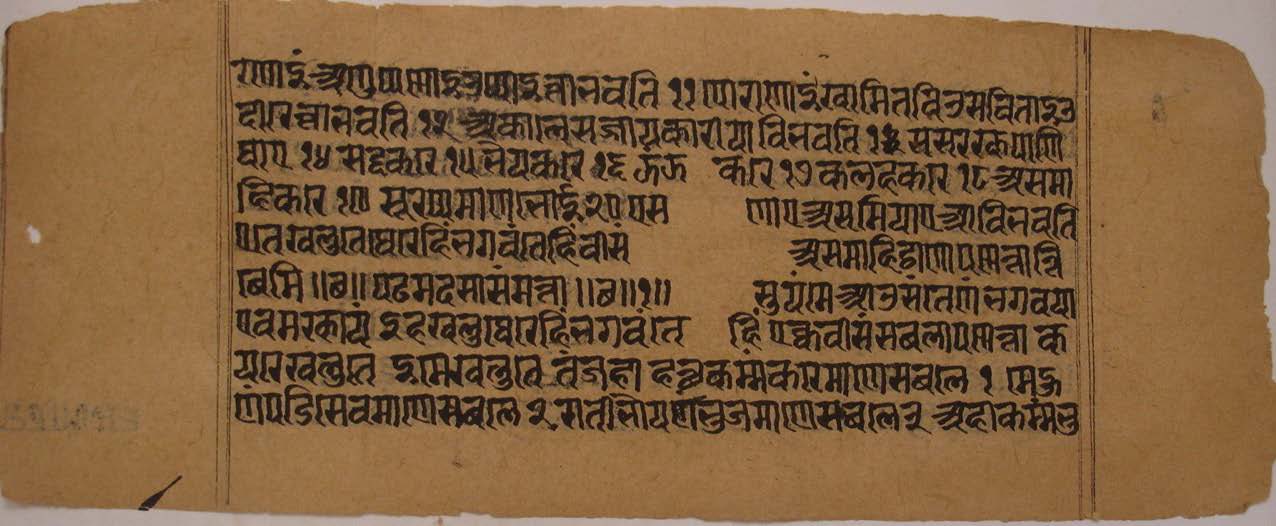 गणाइं अणुप्पणाइ उप्पाइत्ता भवति ११ पोराणाइं खामित विउसविताइ उ
दीरेत्ता भवति १२ अकाले सज्झायकारी या वि भवति १३ ससरक्खपाणि
पाए १४ सद्दकरे १५ भेयकरे १६ झंझ करे १७ कलहकरे १८ असमा
हिकारे १९ सूरप्पमाणभोई २० एस णाए असमियाए आवि भवति
एते खलु ते थेरेहिं भगवंतेहिं वीसं असमाहिट्ठाणा पण्णत्ता त्ति
बेमि ॥ छ ॥ पढमदसा सम्मत्ता ॥ छ ॥ १ ॥ सुयं मे आउसं तेणं भगवया
एवमक्खायं इह खलु थेरेहिं भगवंते हिं एक्कवीसं सबला पण्णत्ता क
यरे खलु ते इमे खलु ते तं जहा हत्थकम्मं करेमाणे सबले १ मेहु
णं पडिसेवमाणे सबले २ रातीभोयणं भुंजमाणे सबले ३ अहाकम्मं भु